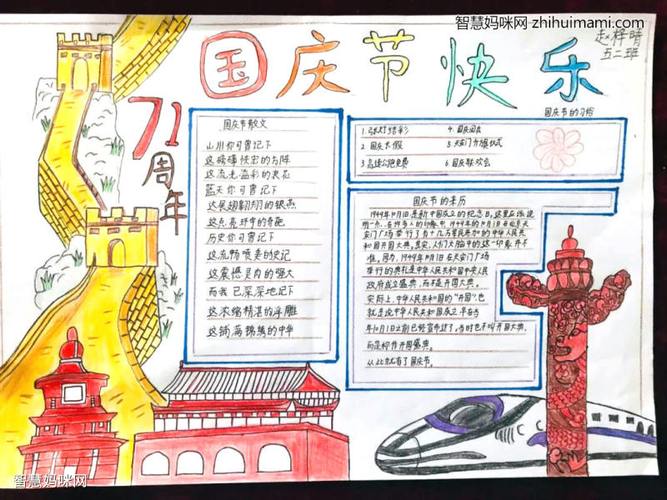 智慧妈咪网-zhihuimami.com
国庆节快乐
赵梓晴
五二班
71周年
国庆节散文
山川你可曾记下
这磅礴恢宏的方阵
这流光溢彩的表花
蓝天你可曾记下
这展翅翱翔的银燕
这点亮环宇的奇葩
历史你可曾记下
这流畅唯美的史记
这震撼灵肉的强大
而我已深深地记下
这浓缩精湛的浮雕
这锦绣
的中华
国庆节的习俗
1.张灯结彩
4.国庆阅兵
2.国庆长假
5.天安门升旗仪式
3.高速公路免费
6.国庆联欢会
国庆节的来历
1949年10月1日是新中国成立的纪念日,这里应该说
明一点,在许多人的印象中,1949年10月1日在北京天
安门广场举行了有十几万军民参加的中华人民共
和国开国大典,其实,人们大脑中的这一印象并不
准。因为,1949年10月1日在天安门广场
举行的典礼是中华人民共和国中央人民
政府成立盛典,而不是开国大典。
实际上,中华人民共和国的"开国",也
就是说中华人民共和国成立,早在当
年10月1日之前
已经宣布过了,当时也不叫开国大典,
而是称作开国盛典。
从此就有了国庆节。
智慧妈咪网